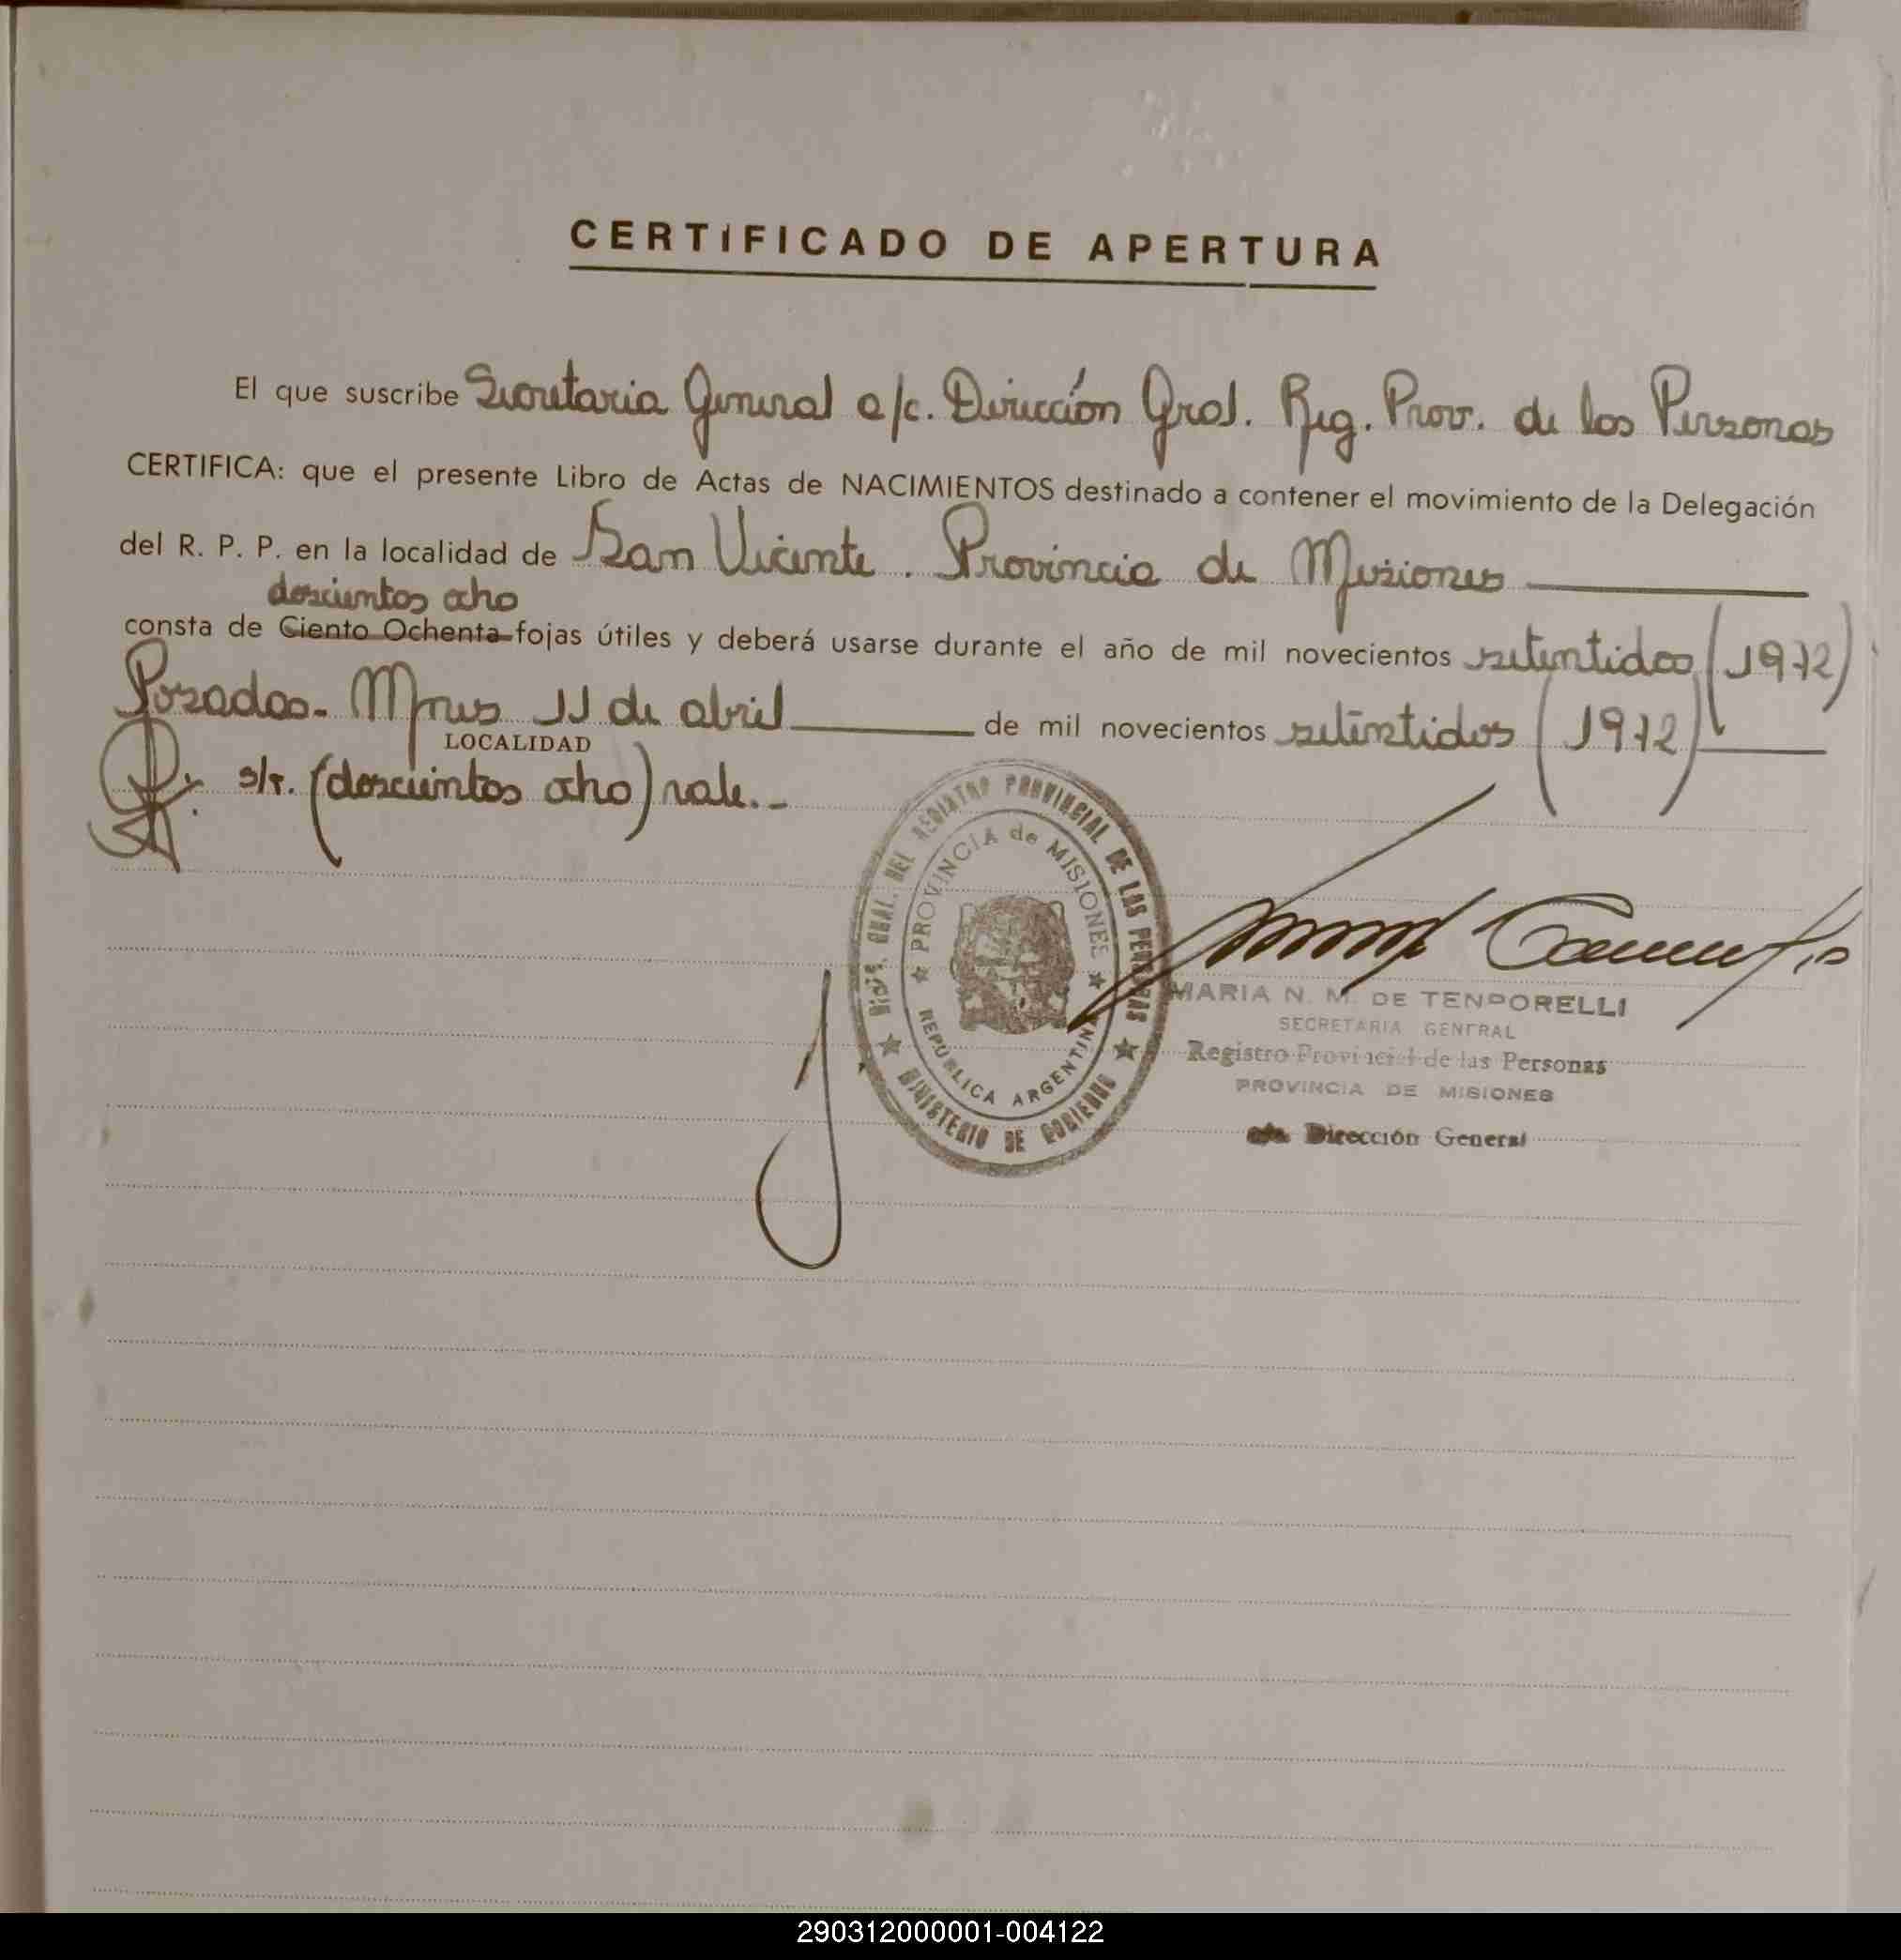 CERTIFICADO DE APERTURA
El que suscribe Secretaria General a/c. Dirección Gral. Reg. Prov. de las Personas
CERTIFICA: que el presente Libro de Actas de NACIMIENTOS destinado a contener el movimiento de la Delegación
del R. P. P. en la localidad de San Vicente. Provincia de Misiones
doscientos ocho
consta de Ciento Ochenta fojas útiles y deberá usarse durante el año de mil novecientos setentidos (1972)
Posadas - Mnes 11 de abril de mil novecientos setentidos (1972)
LOCALIDAD
s/r. (doscientos ocho) vale. -
DIREC. GRAL. DEL REGISTRO PROVINCIAL DE LAS PERSONAS
PROVINCIA de MISIONES
REPUBLICA ARGENTINA
MINISTERIO DE GOBIERNO
MARIA N. M. DE TEMPORELLI
SECRETARIA GENERAL
Registro Provincial de las Personas
PROVINCIA DE MISIONES
a/c. Dirección General
290312000001-004122